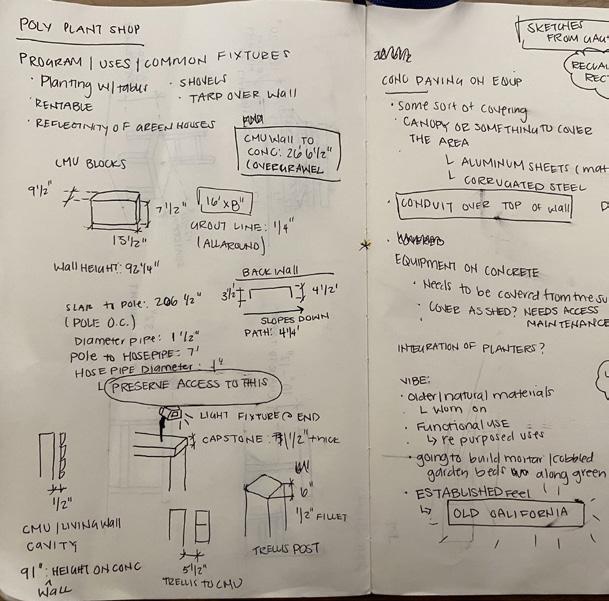 POLY PLANT SHOP
PROGRAM / USES / COMMON FIXTURES
· Planting w/ tables
· SHOVELS
· RENTABLE
· TARP OVER Wall
· REFLECTIVITY OF GREEN HOUSES
CMU Wall TO
CONC: 26' 6 1/2"
(OVERGRAVEL
CMU BLOCKS
9 1/2"
7 1/2"
15 1/2"
16' x 8"
GROUT LINE: 1/4"
(ALLAROUND)
Wall HEIGHT: 92 1/4"
BACK Wall
3 1/2'
4 1/2'
SLOPES DOWN
PATH: 4 1/4'
SLAB to POLE: 206 1/2"
(POLE O.C.)
Diameter pipe: 1 1/2"
Pole to HOSEPIPE: 7'
HOSE PIPE Diameter: 1"
└ PRESERVE ACCESS TO THIS
LIGHT FIXTURE @ END
CAPSTONE: 1 1/2" THICK
1/2"
CMU / LIVING Wall
CAVITY
91": HEIGHT ON CONC
^ Wall
5 1/2"
TRELLIS TO CMU
6"
1/2" FILLET
TRELLIS POST
SKETCHES
FROM
CONC PAVING ON EQUIP
· Some sort of covering
· CANOPY OR SOMETHING TO COVER
THE AREA
└ ALUMINUM SHEETS
└ CORRUGATED STEEL
· CONDUIT OVER TOP OF Wall
· COVERED
EQUIPMENT ON CONCRETE
· Needs to be covered from the
· COVER AS SHED? NEEDS ACCESS
MAINTENANCE
INTEGRATION OF PLANTERS?
VIBE:
· Older/natural materials
└ Worn on
· Functional use
↳ re purposed uses
· going to build mortar / cobbled
garden beds along green
· ESTABLISHED Feel
↳ OLD CALIFORNIA